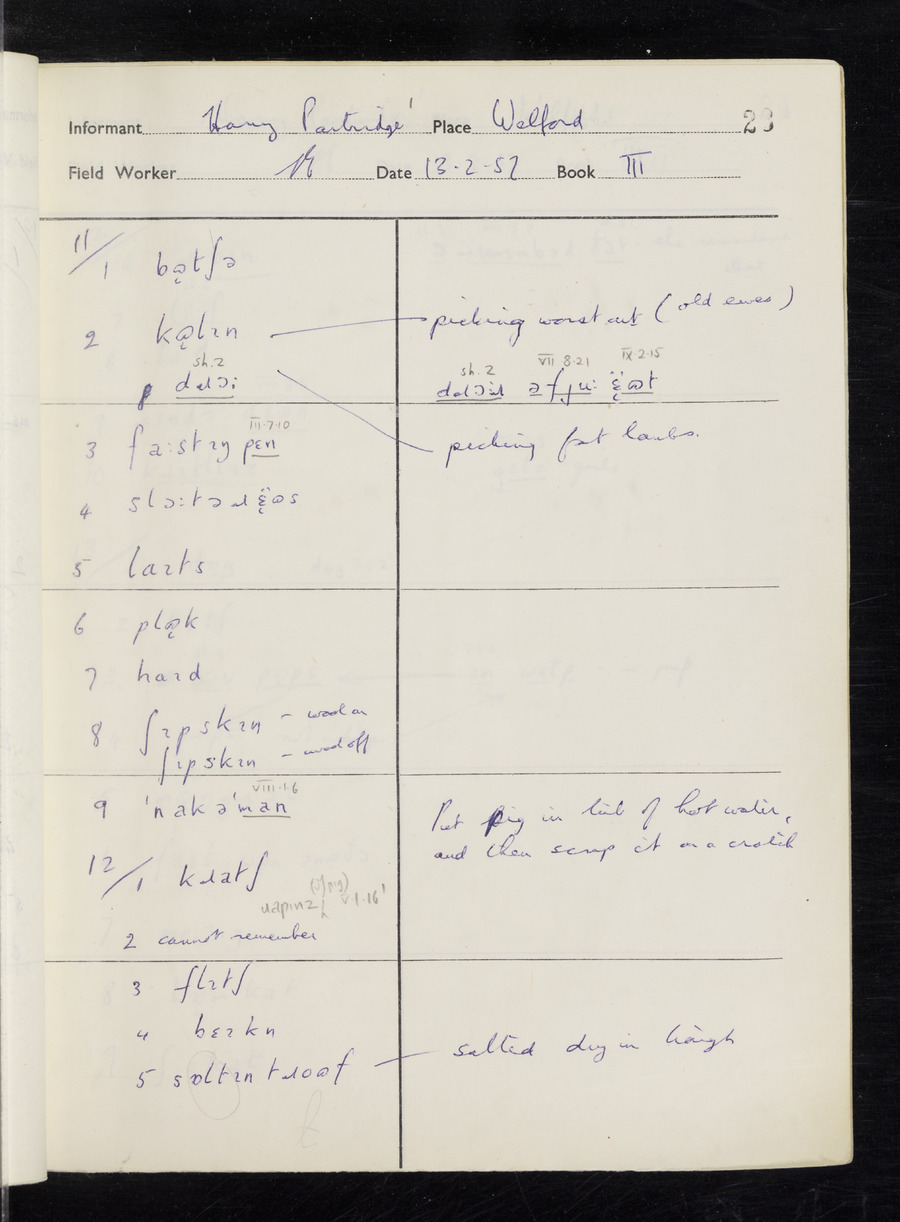 Informant Harry Partridge' Place Welford 23
Field Worker Date 13-2-57 Book III
11/1 bə̨tʃə
2 kə̨lɪn
picking worst out (old ewes)
sh. 2
sh. 2 VII 8·21 IX 2·15
III·7·10
3 fa:stɪŋ pɛn
picking fat lambs.
4
5 laɪts
6 plə̨k
7 hard
8 ʃɪpskɪn - wool on
ʃɪpskɪn - wool off
VIII·1·6
9 'nakə'man
Put pig in tub of hot water,
and then scrap it on a cratch
12/1 kɹatʃ
(of pig) V·1·16'
2 cannot remember
3 flɪtʃ
4 bɛɪkn
5 sɒltɪn tɹoəf
salted dry in